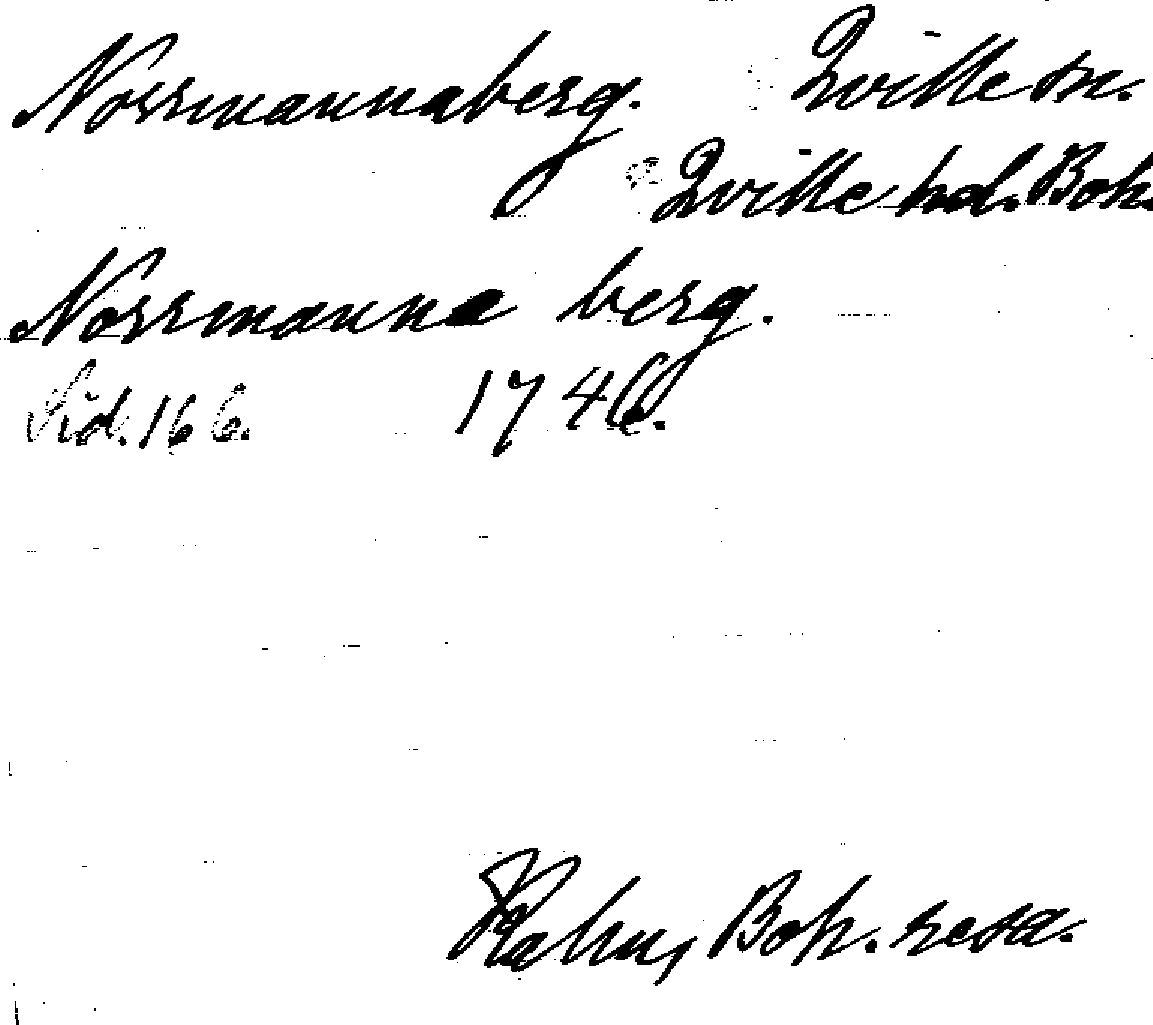 Norrmannaberg. Qville sn.
Qville hd. Boh.
Norrmanna berg.
Sid. 166. 1746.
Kalm, Boh. resa.